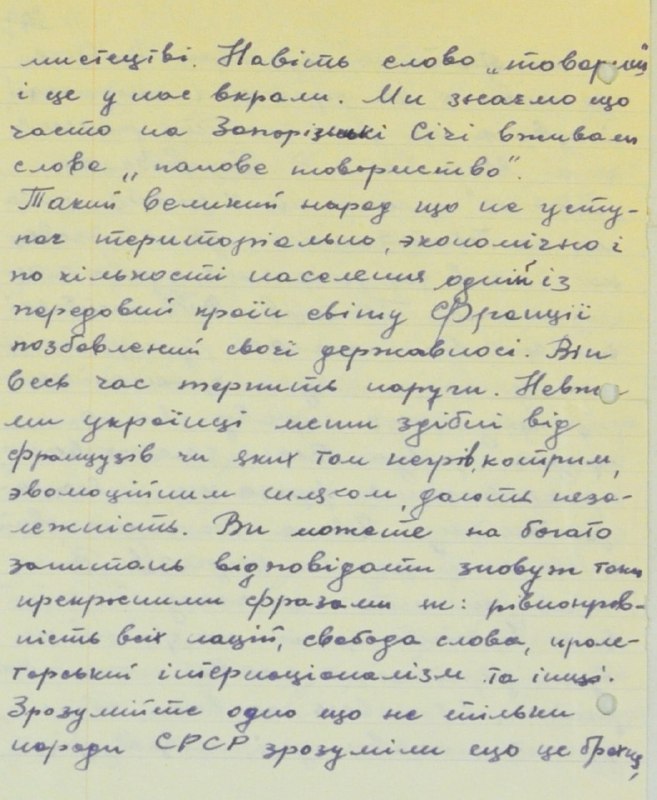 мистецтві. Навіть слово „товариш"
і це у нас вкрали. Ми знаємо що
часто на Запорізькі Січі вживали
слова „панове товариство".
Такий великий народ що не усту-
пає територіально, економічно і
по кількості населення одній із
передовий країн світу Франції
позбавлений своєї державносі. Він
весь час терпить наруги. Невже
ми українці менш здібні від
французів чи яких там негрів, котрим,
эволюційним шляхом, дають неза-
лежність. Ви можете на багато
запитань відповідати зновуж таки
прекрасними фразами як: рівноправ-
ність всіх націй, свобода слова, проле-
тарський інтернаціоналізм та інші.
Зрозумійте одно що не тільки
народи СРСР зрозуміли що це брехня,